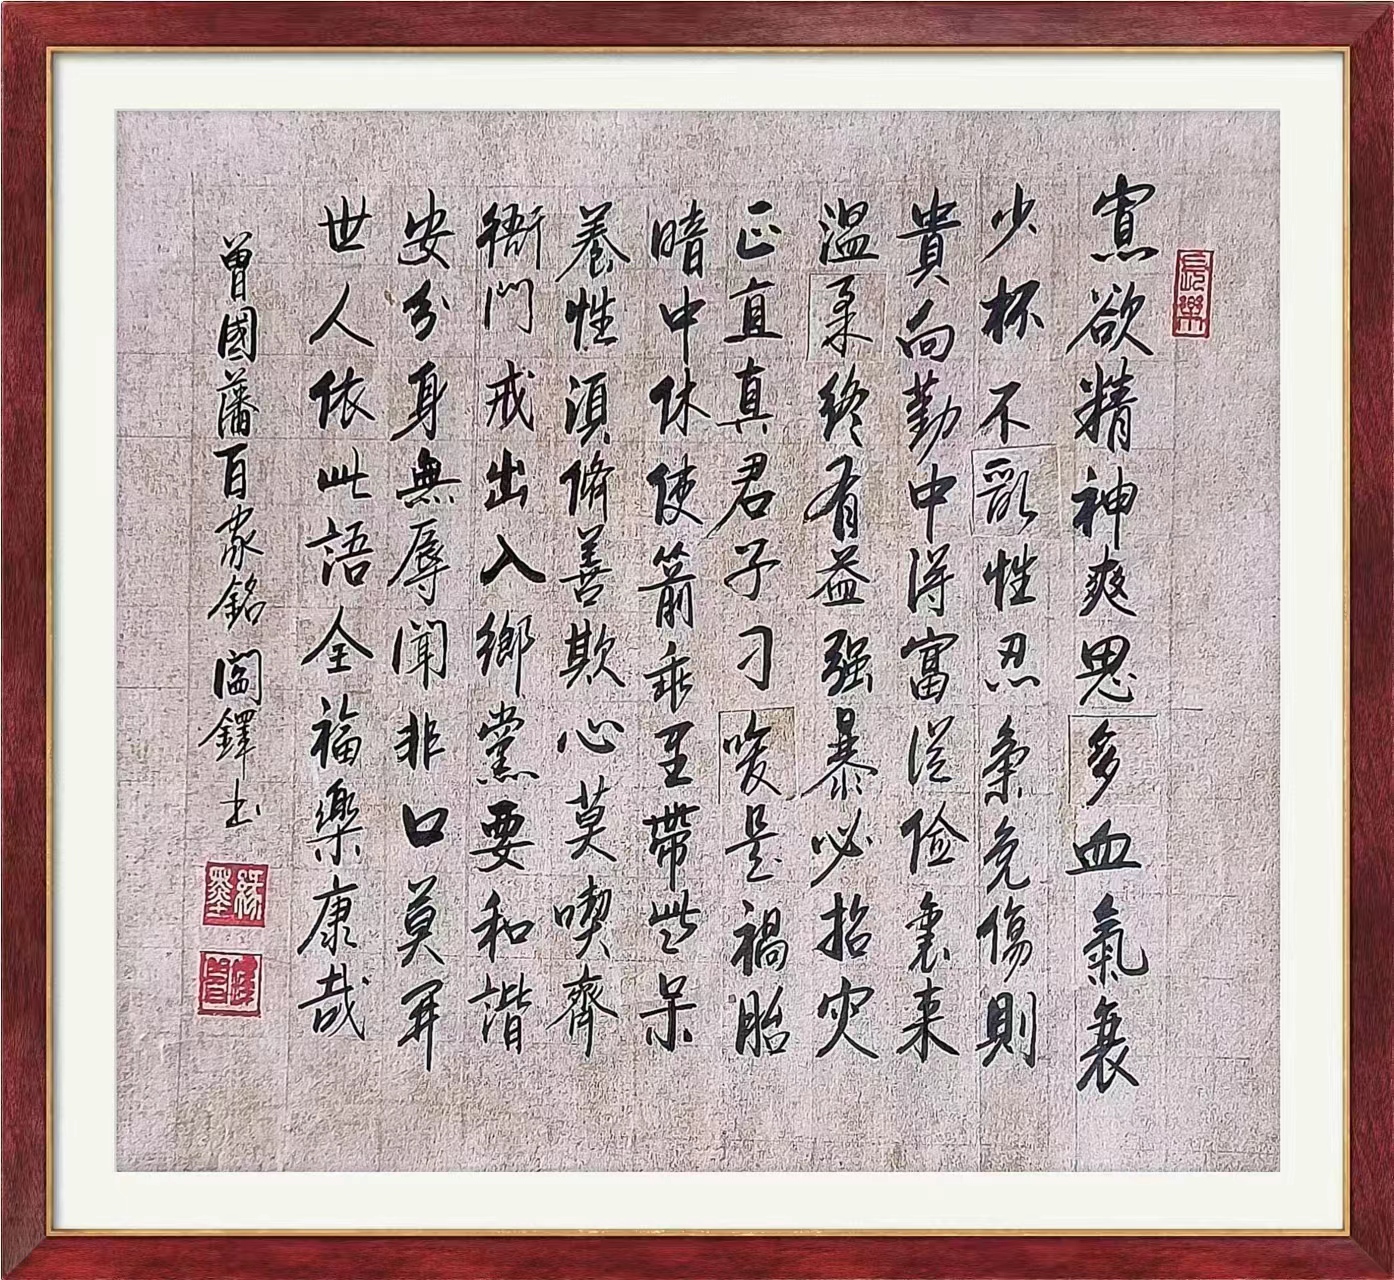 長樂
寡欲精神爽思多血氣衰
少杯不亂性忍氣免傷則
貴向勤中得富從儉裏來
溫柔終有益强暴必招灾
正直真君子刁唆是禍胎
暗中休使箭乖里帶些呆
養性須脩善欺心莫喫齊
衙門戒出入鄉黨要和諧
安分身無辱聞非口莫開
世人依此語全福樂康哉
曾國藩百家銘 閻鐸书